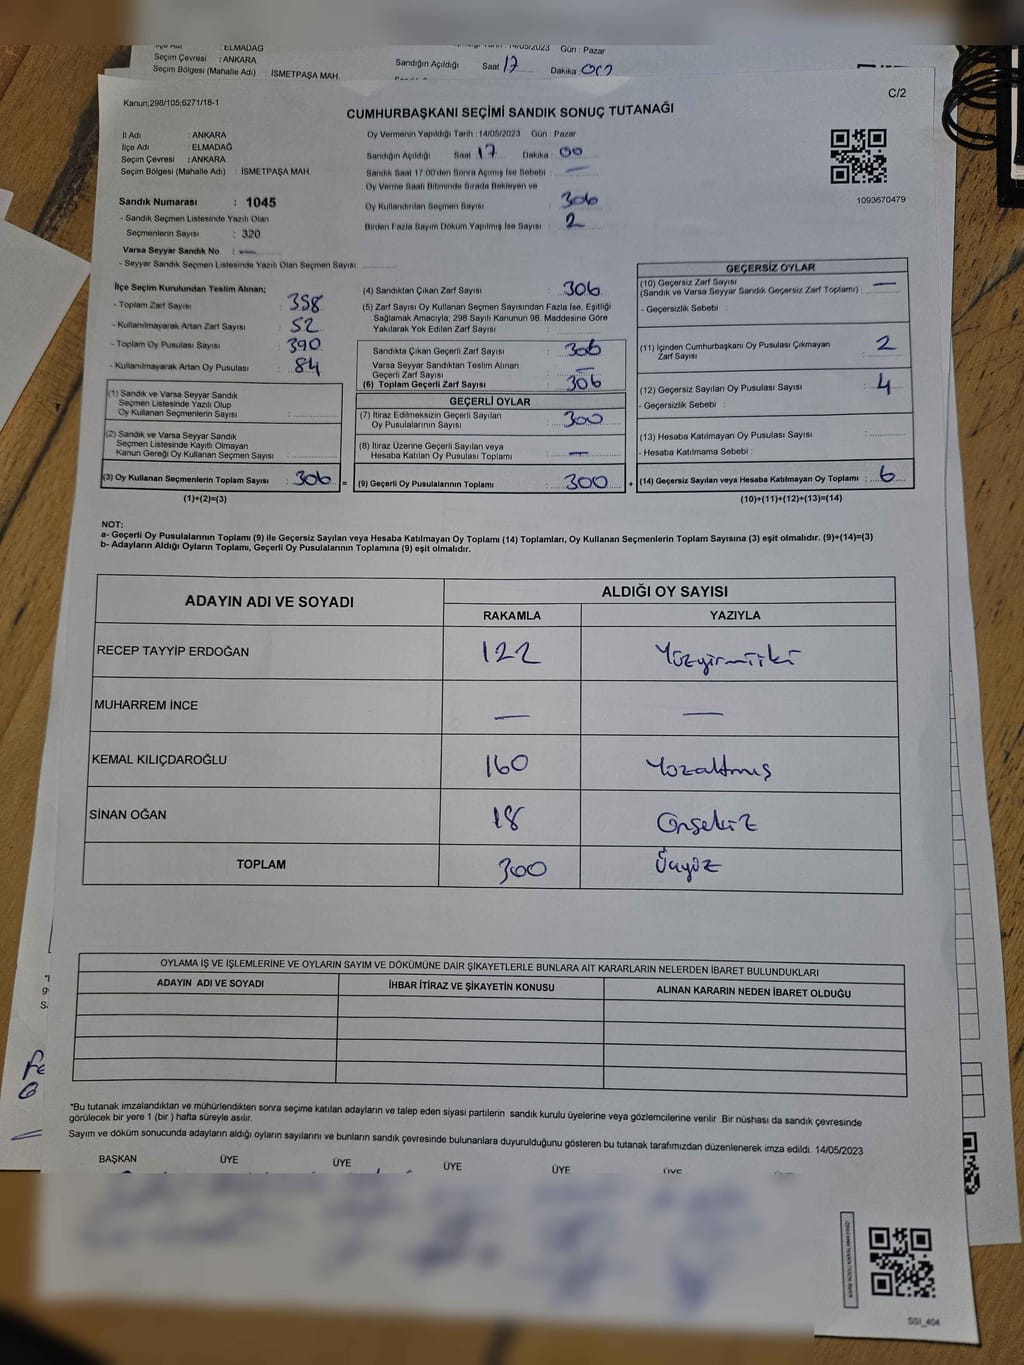 İlçe Adı : ELMADAĞ
Seçim Çevresi : ANKARA
Seçim Bölgesi (Mahalle Adı) : İSMETPAŞA MAH.
14/05/2023 Gün : Pazar
Sandığın Açıldığı Saat 17 Dakika 00
Kanun;298/105;6271/18-1
C/2
CUMHURBAŞKANI SEÇİMİ SANDIK SONUÇ TUTANAĞI
İl Adı : ANKARA
İlçe Adı : ELMADAĞ
Seçim Çevresi : ANKARA
Seçim Bölgesi (Mahalle Adı) : İSMETPAŞA MAH.
Oy Vermenin Yapıldığı Tarih : 14/05/2023 Gün : Pazar
Sandığın Açıldığı Saat 17 Dakika : 00
Sandık Saat 17.00'den Sonra Açılmış İse Sebebi : —
Oy Verme Saati Bitiminde Sırada Bekleyen ve
Oy Kullandırılan Seçmen Sayısı : 306
Birden Fazla Sayım Döküm Yapılmış İse Sayısı : 2
1093670479
Sandık Numarası : 1045
- Sandık Seçmen Listesinde Yazılı Olan
Seçmenlerin Sayısı : 320
Varsa Seyyar Sandık No : —
- Seyyar Sandık Seçmen Listesinde Yazılı Olan Seçmen Sayısı:
İlçe Seçim Kurulundan Teslim Alınan;
- Toplam Zarf Sayısı : 358
- Kullanılmayarak Artan Zarf Sayısı : 52
- Toplam Oy Pusulası Sayısı : 390
- Kullanılmayarak Artan Oy Pusulası : 84
(1) Sandık ve Varsa Seyyar Sandık
Seçmen Listesinde Yazılı Olup
Oy Kullanan Seçmenlerin Sayısı :
(2) Sandık ve Varsa Seyyar Sandık
Seçmen Listesinde Kayıtlı Olmayan
Kanun Gereği Oy Kullanan Seçmen Sayısı :
(3) Oy Kullanan Seçmenlerin Toplam Sayısı : 306 =
(1)+(2)=(3)
(4) Sandıktan Çıkan Zarf Sayısı : 306
(5) Zarf Sayısı Oy Kullanan Seçmen Sayısından Fazla İse, Eşitliği
Sağlamak Amacıyla; 298 Sayılı Kanunun 98. Maddesine Göre
Yakılarak Yok Edilen Zarf Sayısı :
Sandıkta Çıkan Geçerli Zarf Sayısı : 306
Varsa Seyyar Sandıktan Teslim Alınan
Geçerli Zarf Sayısı : —
(6) Toplam Geçerli Zarf Sayısı : 306
GEÇERLİ OYLAR
(7) İtiraz Edilmeksizin Geçerli Sayılan
Oy Pusulalarının Sayısı : 300
(8) İtiraz Üzerine Geçerli Sayılan veya
Hesaba Katılan Oy Pusulası Toplamı : —
(9) Geçerli Oy Pusulalarının Toplamı : 300 +
GEÇERSİZ OYLAR
(10) Geçersiz Zarf Sayısı
(Sandık ve Varsa Seyyar Sandık Geçersiz Zarf Toplamı) : —
- Geçersizlik Sebebi :
(11) İçinden Cumhurbaşkanı Oy Pusulası Çıkmayan
Zarf Sayısı : 2
(12) Geçersiz Sayılan Oy Pusulası Sayısı : 4
- Geçersizlik Sebebi :
(13) Hesaba Katılmayan Oy Pusulası Sayısı :
- Hesaba Katılmama Sebebi :
(14) Geçersiz Sayılan veya Hesaba Katılmayan Oy Toplamı : 6
(10)+(11)+(12)+(13)=(14)
NOT:
a- Geçerli Oy Pusulalarının Toplamı (9) ile Geçersiz Sayılan veya Hesaba Katılmayan Oy Toplamı (14) Toplamları, Oy Kullanan Seçmenlerin Toplam Sayısına (3) eşit olmalıdır. (9)+(14)=(3)
b- Adayların Aldığı Oyların Toplamı, Geçerli Oy Pusulalarının Toplamına (9) eşit olmalıdır.
ADAYIN ADI VE SOYADI
ALDIĞI OY SAYISI
RAKAMLA YAZIYLA
RECEP TAYYİP ERDOĞAN 122 Yüzyirmiiki
MUHARREM İNCE — —
KEMAL KILIÇDAROĞLU 160 Yüzaltmış
SİNAN OĞAN 18 Onsekiz
TOPLAM 300 Üçyüz
OYLAMA İŞ VE İŞLEMLERİNE VE OYLARIN SAYIM VE DÖKÜMÜNE DAİR ŞİKAYETLERLE BUNLARA AİT KARARLARIN NELERDEN İBARET BULUNDUKLARI
ADAYIN ADI VE SOYADI İHBAR İTİRAZ VE ŞİKAYETİN KONUSU ALINAN KARARIN NEDEN İBARET OLDUĞU
*Bu tutanak imzalandıktan ve mühürlendikten sonra seçime katılan adayların ve talep eden siyasi partilerin sandık kurulu üyelerine veya gözlemcilerine verilir .Bir nüshası da sandık çevresinde
görülecek bir yere 1 (bir ) hafta süreyle asılır.
Sayım ve döküm sonucunda adayların aldığı oyların sayılarını ve bunların sandık çevresinde bulunanlara duyurulduğunu gösteren bu tutanak tarafımızdan düzenlenerek imza edildi. 14/05/2023
BAŞKAN ÜYE ÜYE ÜYE ÜYE ÜYE
SSI_404